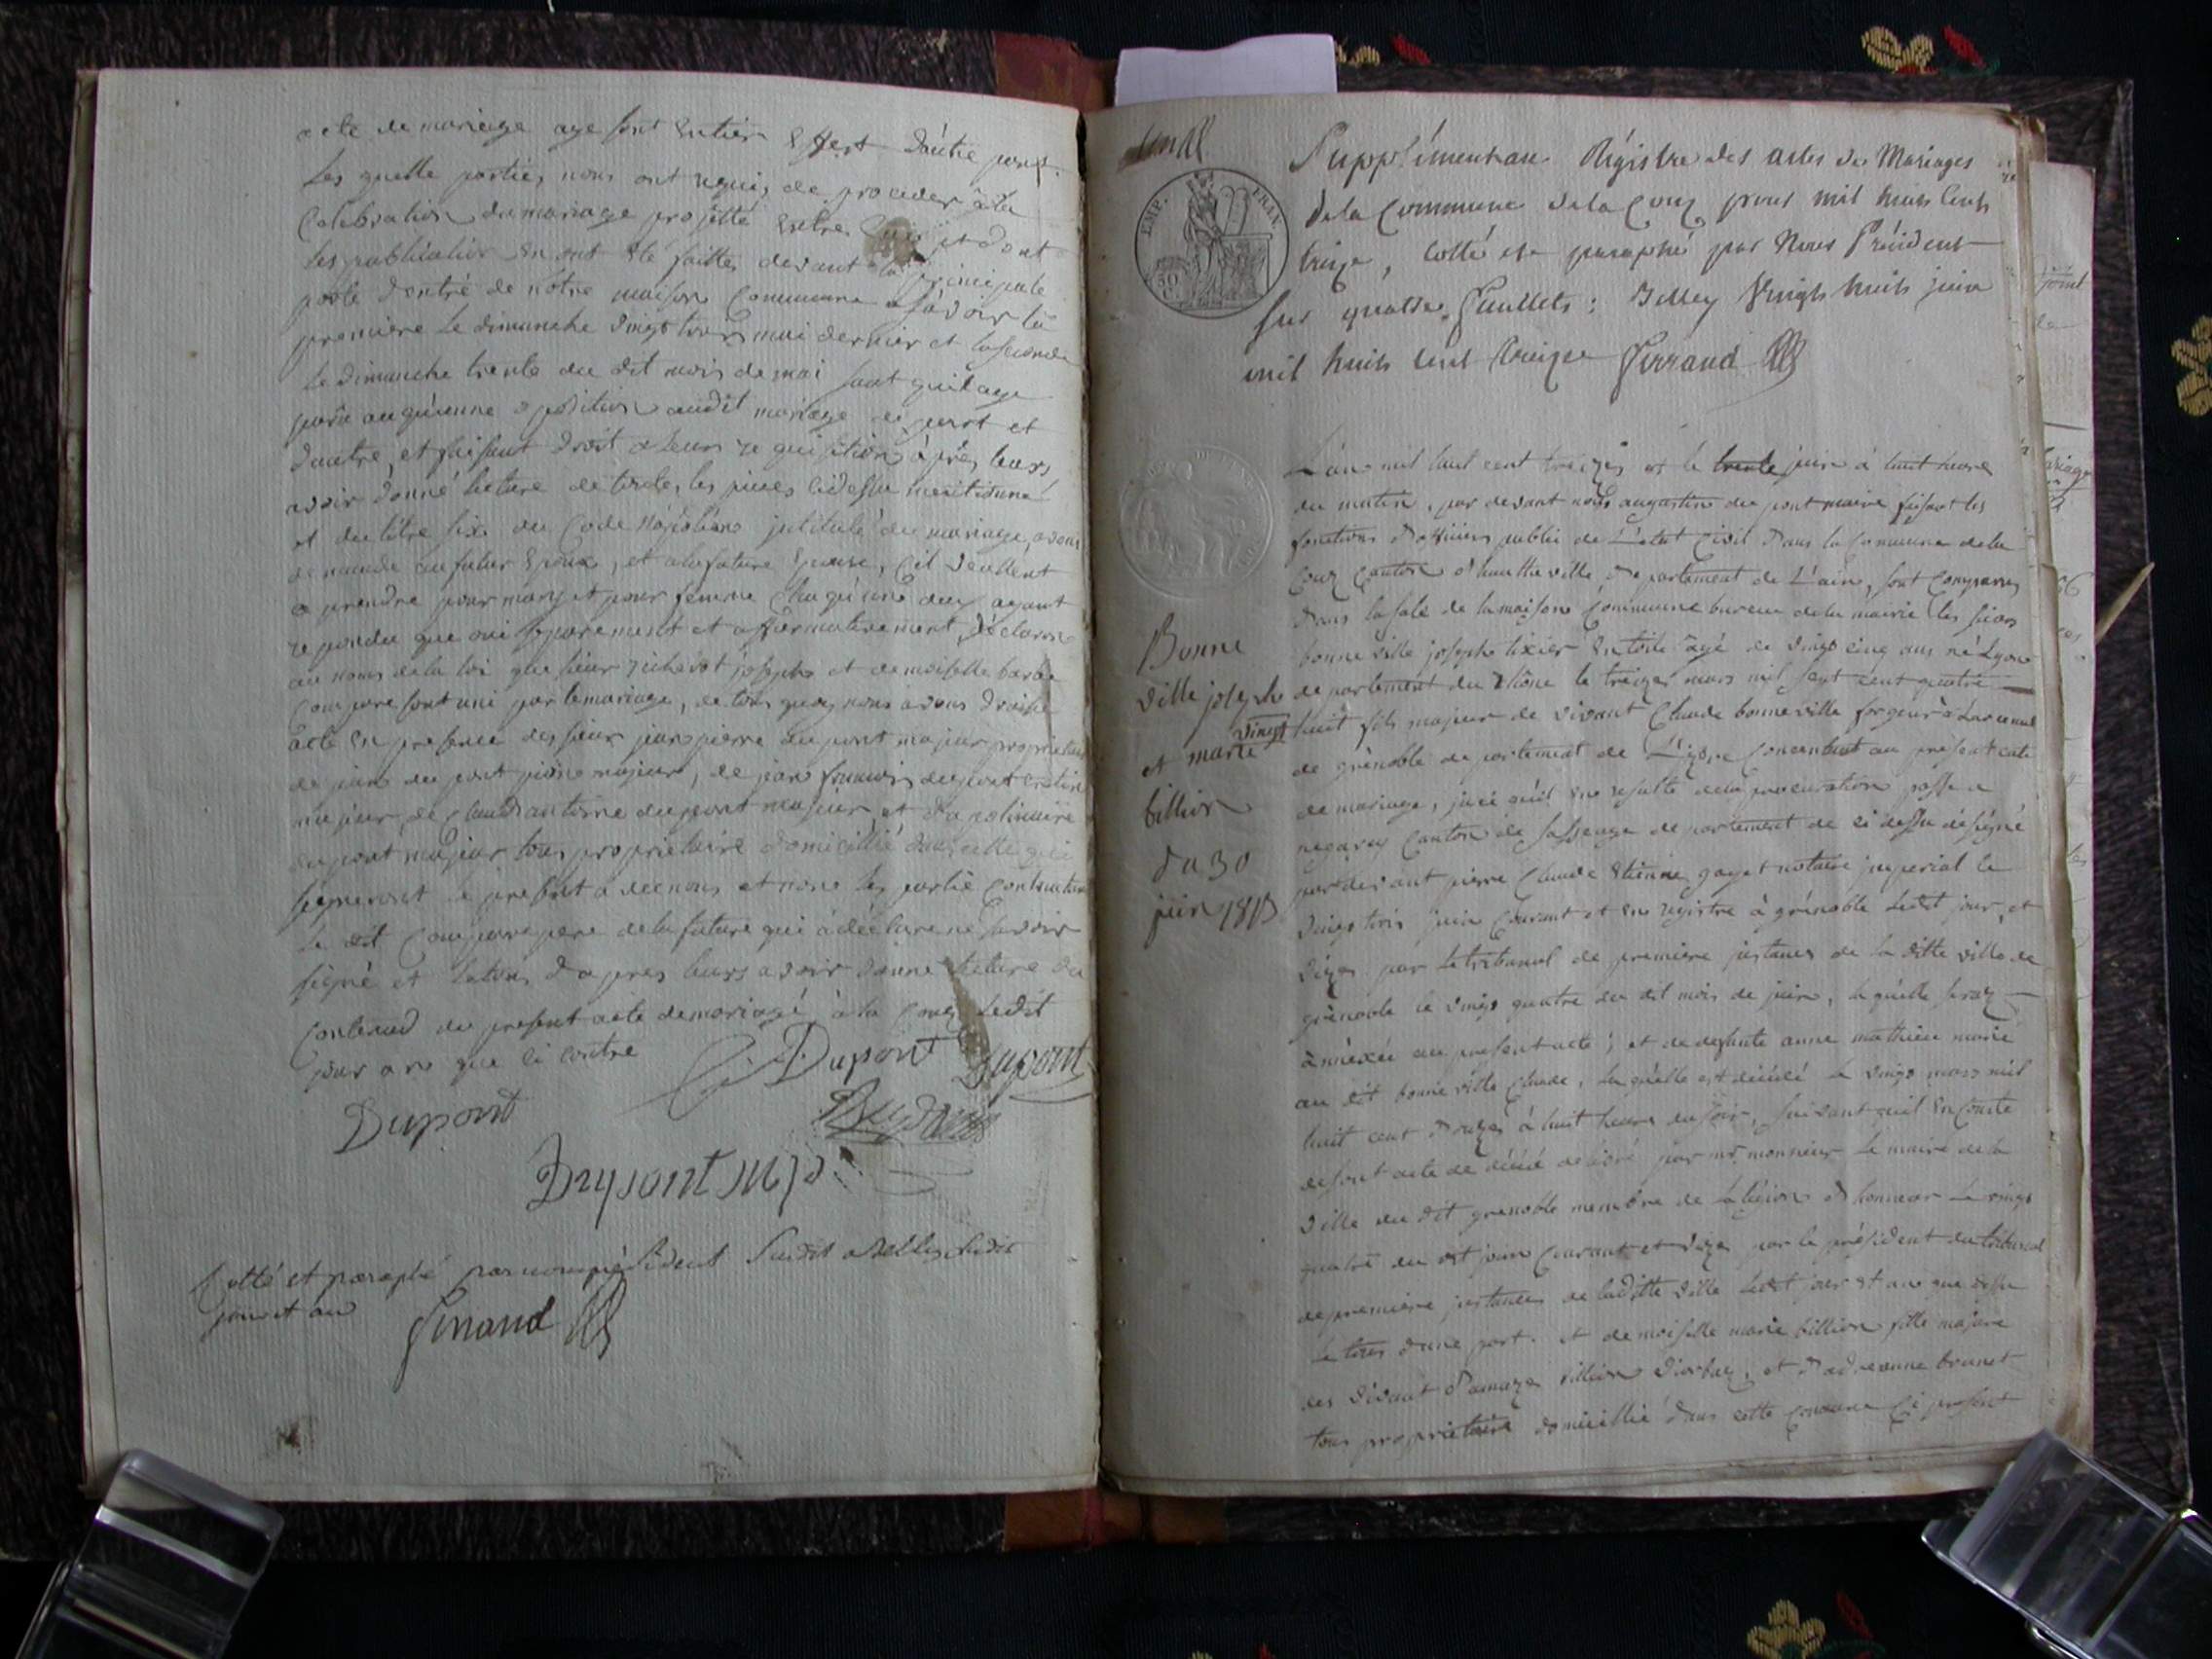 acte de mariage aye sont entier effert d'autre part.
Les quelle parties nous ont requis de proceder à la
Celebration du mariage projetté entre eux et dont
les publication en ont été faittes devant la principale
porte d'entré de notre maison Commune a savoir la
premiere le dimanche vingt trois mai dernier et la seconde
le dimanche trente du dit mois de mai sant quil aye
paru auqu'enne opposition audit mariage de part et
dautre, et faisant droit a leurs requisition après leurs
avoir donné lecture de toute les pieces cidessu mentionné
et du titre six du Code Napoléons intitulé du mariage, avons
demandé au futur Epoux, et a la future Epouse, s'il veullent
se prendre pour mary et pour femme chaqu'une deux ayant
repondu que oui separement et affirmativement, déclarons
au noms de la loi que sieur joseph et demoiselle barbe
Compare sont uni par le mariage, de tous quoy nous avons draissé
acte en presence des sieur jean pierre dupont majeur proprietaire
de jean du pont majeur, de jean francois dupont
majeur, de Claude antoine dupont majeur et d'apolinaire
dupont majeur tous proprietaire domicillié dans cette qui
signeront le present avec nous et none les partie contractante
le dit Compare pere de la future qui a déclaré ne savoir
signé et le tous d'apres leurs avoir donné lecture du
Contenud du present acte de mariage à la Couz ledit
jour an que ci contre
Dupont Dupont
Dupont
Dupont
Cotté et paraphé par nous président susdit a Belley ledit
jour et an
Ferrand
un
Supplément au Régistre des actes de Mariages
de la Commune de la Couz pour mil huit cent
treize, cotté et paraphé par Nous Président
sur quatre feuillets ; Belley vingt huit juin
mil huit cent treize Ferrand
EMP. FRAN.
50 C.
L'an mil huit cent treizes et le trente juin à huit heure
du matin, par devant nous augustin du pont maire faisant les
fonctions d'officiers public de L'état Civil dans la Commune de la
Couz Canton d'hautheville, departement de L'ain, sont Comparus
dans la sale de la maison Commune bureau de la mairie les sieur
bonne ville joseph tixier en toile âgé de vingt cinq ans né Lyon
departement du Rhône le treize mars mil sept cent quatre
vingt huit fils majeur de vivant Claude bonneville forgeur à Larcenal
de grénoble departement de L'izere Concentant au présent acte
de mariage, insi qu'il en resulte de la procuration passé a
Canton de Sassenage departement de ci dessu désigné
pardevant pierre Claude Etienne gayet notaire imperial le
vingt trois juin Courant et en registre à grénoble ledit jour, et
vizer par le tribunal de premiere instance de la ditte ville de
grénoble le vingt quatre du dit mois de juin, la quelle serat
annéxée au present acte ; et de defunte anne mathieu marié
au dit bonne ville Claude, la qu'elle est décédé le vingt mars mil
huit cent douzes à huit heure du soir, suivant quil en Conste
de sont acte de décé delivré par mr. monsieur le maire de la
ville du dit grenoble membre de la légion d'honneur le vingt
quatre du dit juin Courant et vizer par le président du tribunal
de première instance de laditte ville ledit jour et an que dessu
le tous d'une part. et demoiselle marie billion fille majeure
des vivant billion et d'adrienne brunet
tous proprietaire domicillié dans cette Commune ci present
Bonne
ville joseph
et marie
billion
du 30
juin 1813